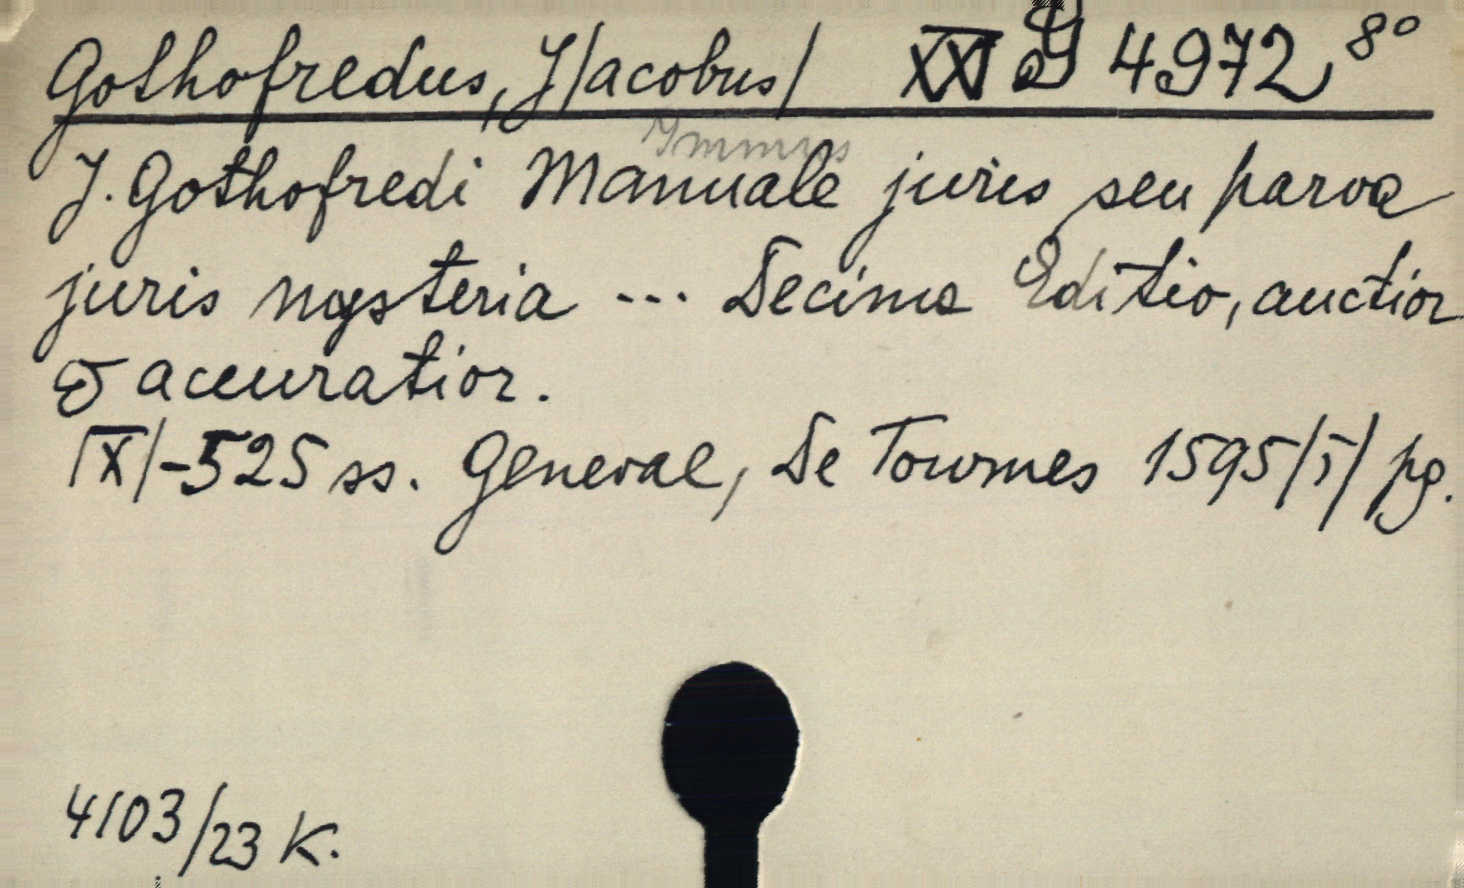 Gothofredus, J/acobus/ XXI J 4972, 8°
J. Gothofredi Manuale juris seu parva
juris mysteria ... Decima Editio, auctior
& accuratior.
/X/-525 ss. Genevae, De Tournes 1595/?/ pg.
4103/23 K.